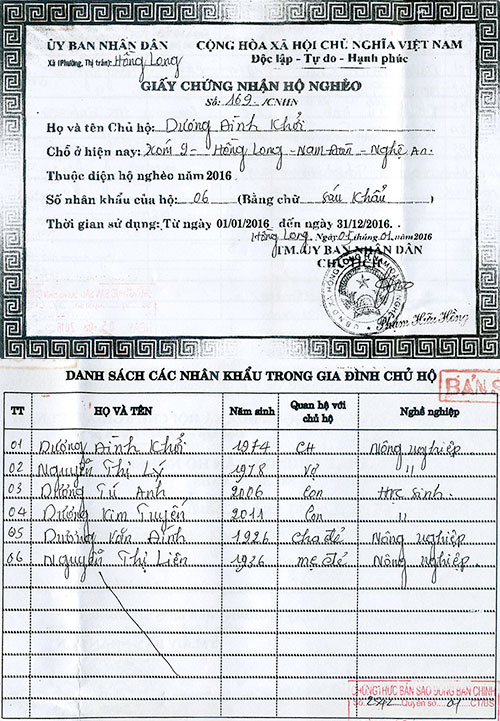 ỦY BAN NHÂN DÂN
Xã (Phường, Thị trấn): Hồng Long
CỘNG HÒA XÃ HỘI CHỦ NGHĨA VIỆT NAM
Độc lập - Tự do - Hạnh phúc
GIẤY CHỨNG NHẬN HỘ NGHÈO
Số: 169 /CNHN
Họ và tên Chủ hộ: Dương Đình Khởi
Chỗ ở hiện nay: Xóm 9 - Hồng Long - Nam Đàn - Nghệ An.
Thuộc diện hộ nghèo năm 2016
Số nhân khẩu của hộ: 06 (Bằng chữ Sáu Khẩu)
Thời gian sử dụng: Từ ngày 01/01/2016 đến ngày 31/12/2016.
Hồng Long, Ngày 01 tháng 01 năm 2016
TM. ỦY BAN NHÂN DÂN
CHỦ TỊCH
Phạm Hữu Hồng
DANH SÁCH CÁC NHÂN KHẨU TRONG GIA ĐÌNH CHỦ HỘ
BẢN S
TT HỌ VÀ TÊN Năm sinh Quan hệ với chủ hộ Nghề nghiệp
01 Dương Đình Khởi 1974 CH Nông nghiệp
02 Nguyễn Thị Lý 1978 Vợ "
03 Dương Tú Anh 2006 Con Học Sinh.
04 Dương Kim Tuyến 2011 Con "
05 Dương Văn Đính 1926 cha đẻ Nông nghiệp
06 Nguyễn Thị Liên 1936 mẹ đẻ Nông nghiệp.
CHỨNG THỰC BẢN SAO ĐÚNG BẢN CHÍNH
Số Quyển số 01 CT/BS